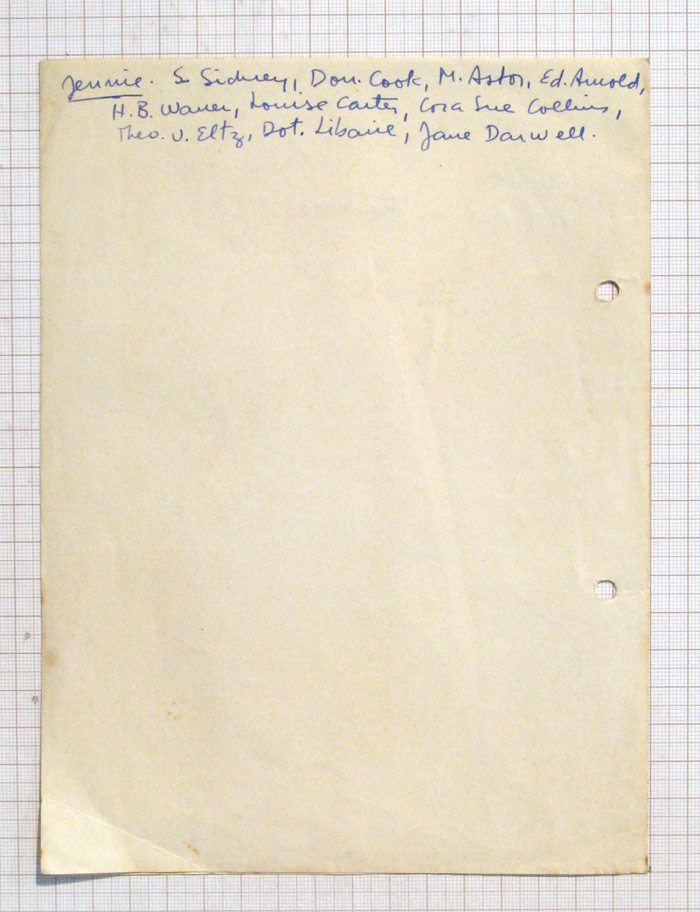 Jennie. S. Sidney, Don. Cook, M. Astor, Ed. Arnold,
H. B. Warner, Louise Carter, Cora Sue Collins,
Theo. v. Eltz, Dot. Libaire, Jane Darwell.